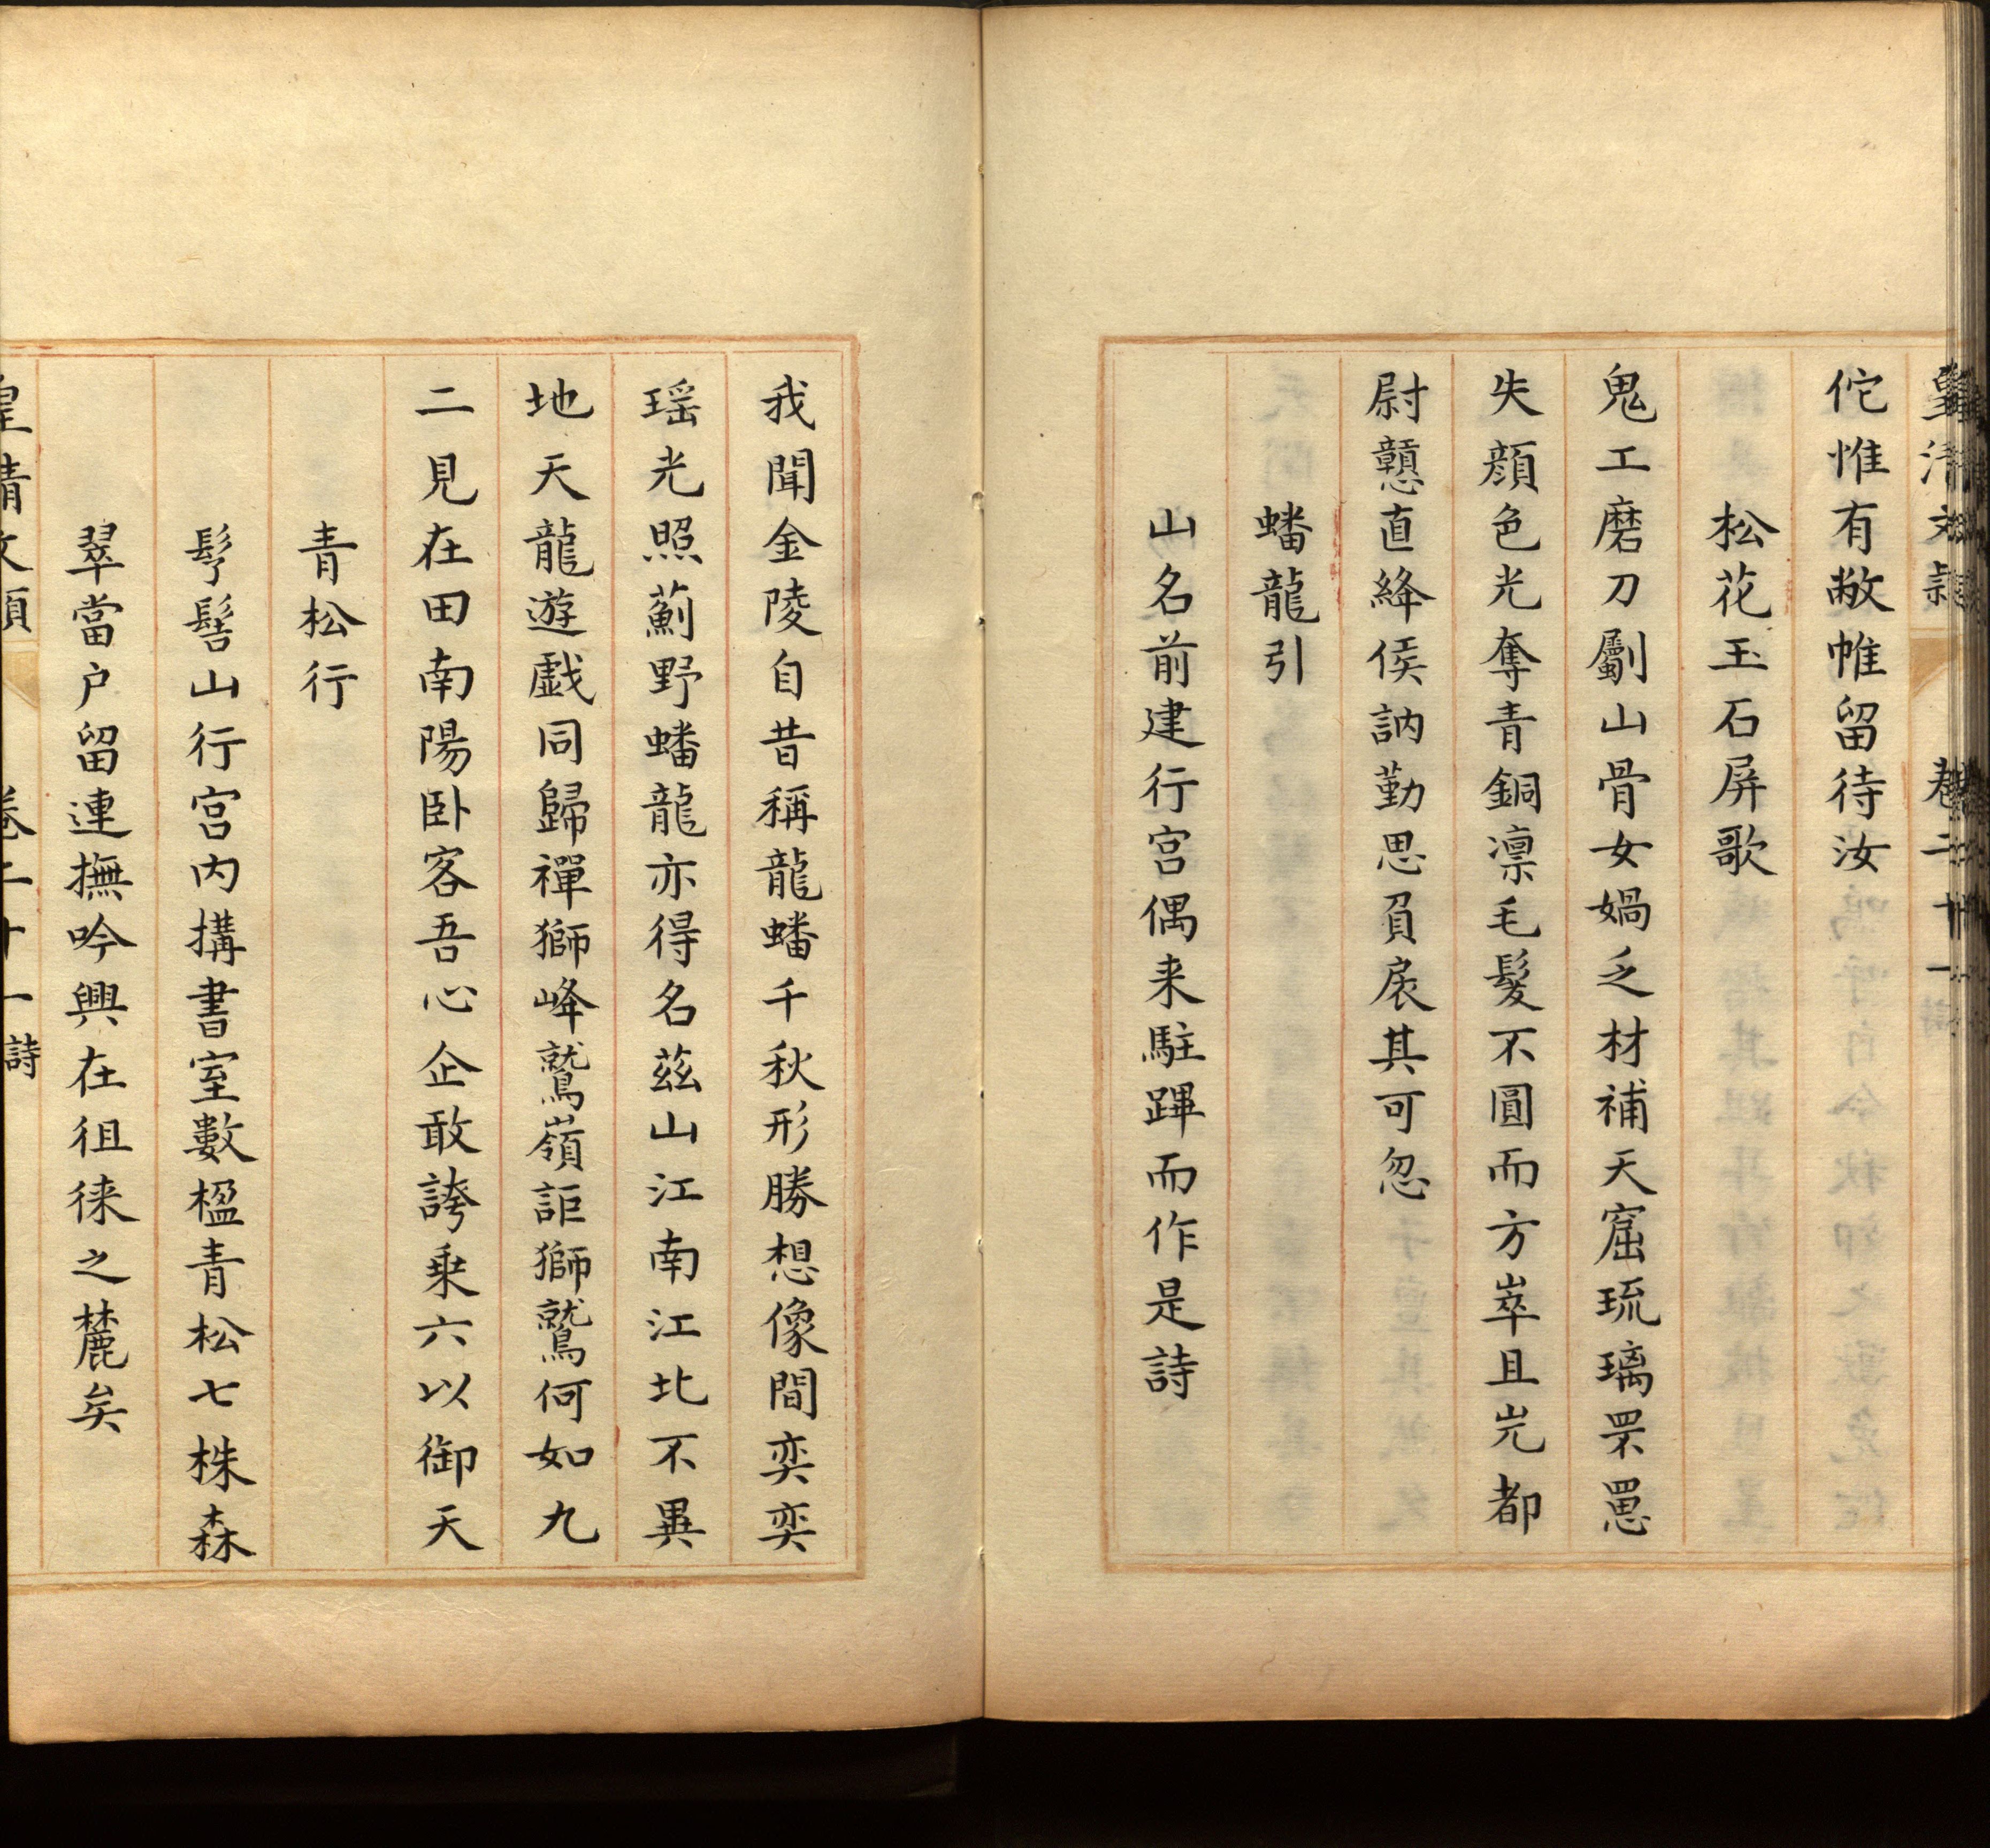 皇清文穎 卷二十一 詩
佗惟有敝帷留待汝
松花玉石屏歌
鬼工磨刀劚山骨女媧乏材補天窟琉璃罘罳
失顏色光奪青銅凛毛髮不圓而方崒且屼都
尉戇直絳侯訥勤思負扆其可忽
蟠龍引
山名前建行宮偶来駐蹕而作是詩
我聞金陵自昔稱龍蟠千秋形勝想像間奕奕
瑶光照薊野蟠龍亦得名茲山江南江北不異
地天龍遊戲同歸禪獅峰鷲嶺詎獅鷲何如九
二見在田南陽臥客吾心企敢誇乗六以御天
青松行
髣髻山行宮内搆書室數楹青松七株森
翠當户留連撫吟興在徂徠之麓矣
皇清文穎 卷二十一 詩